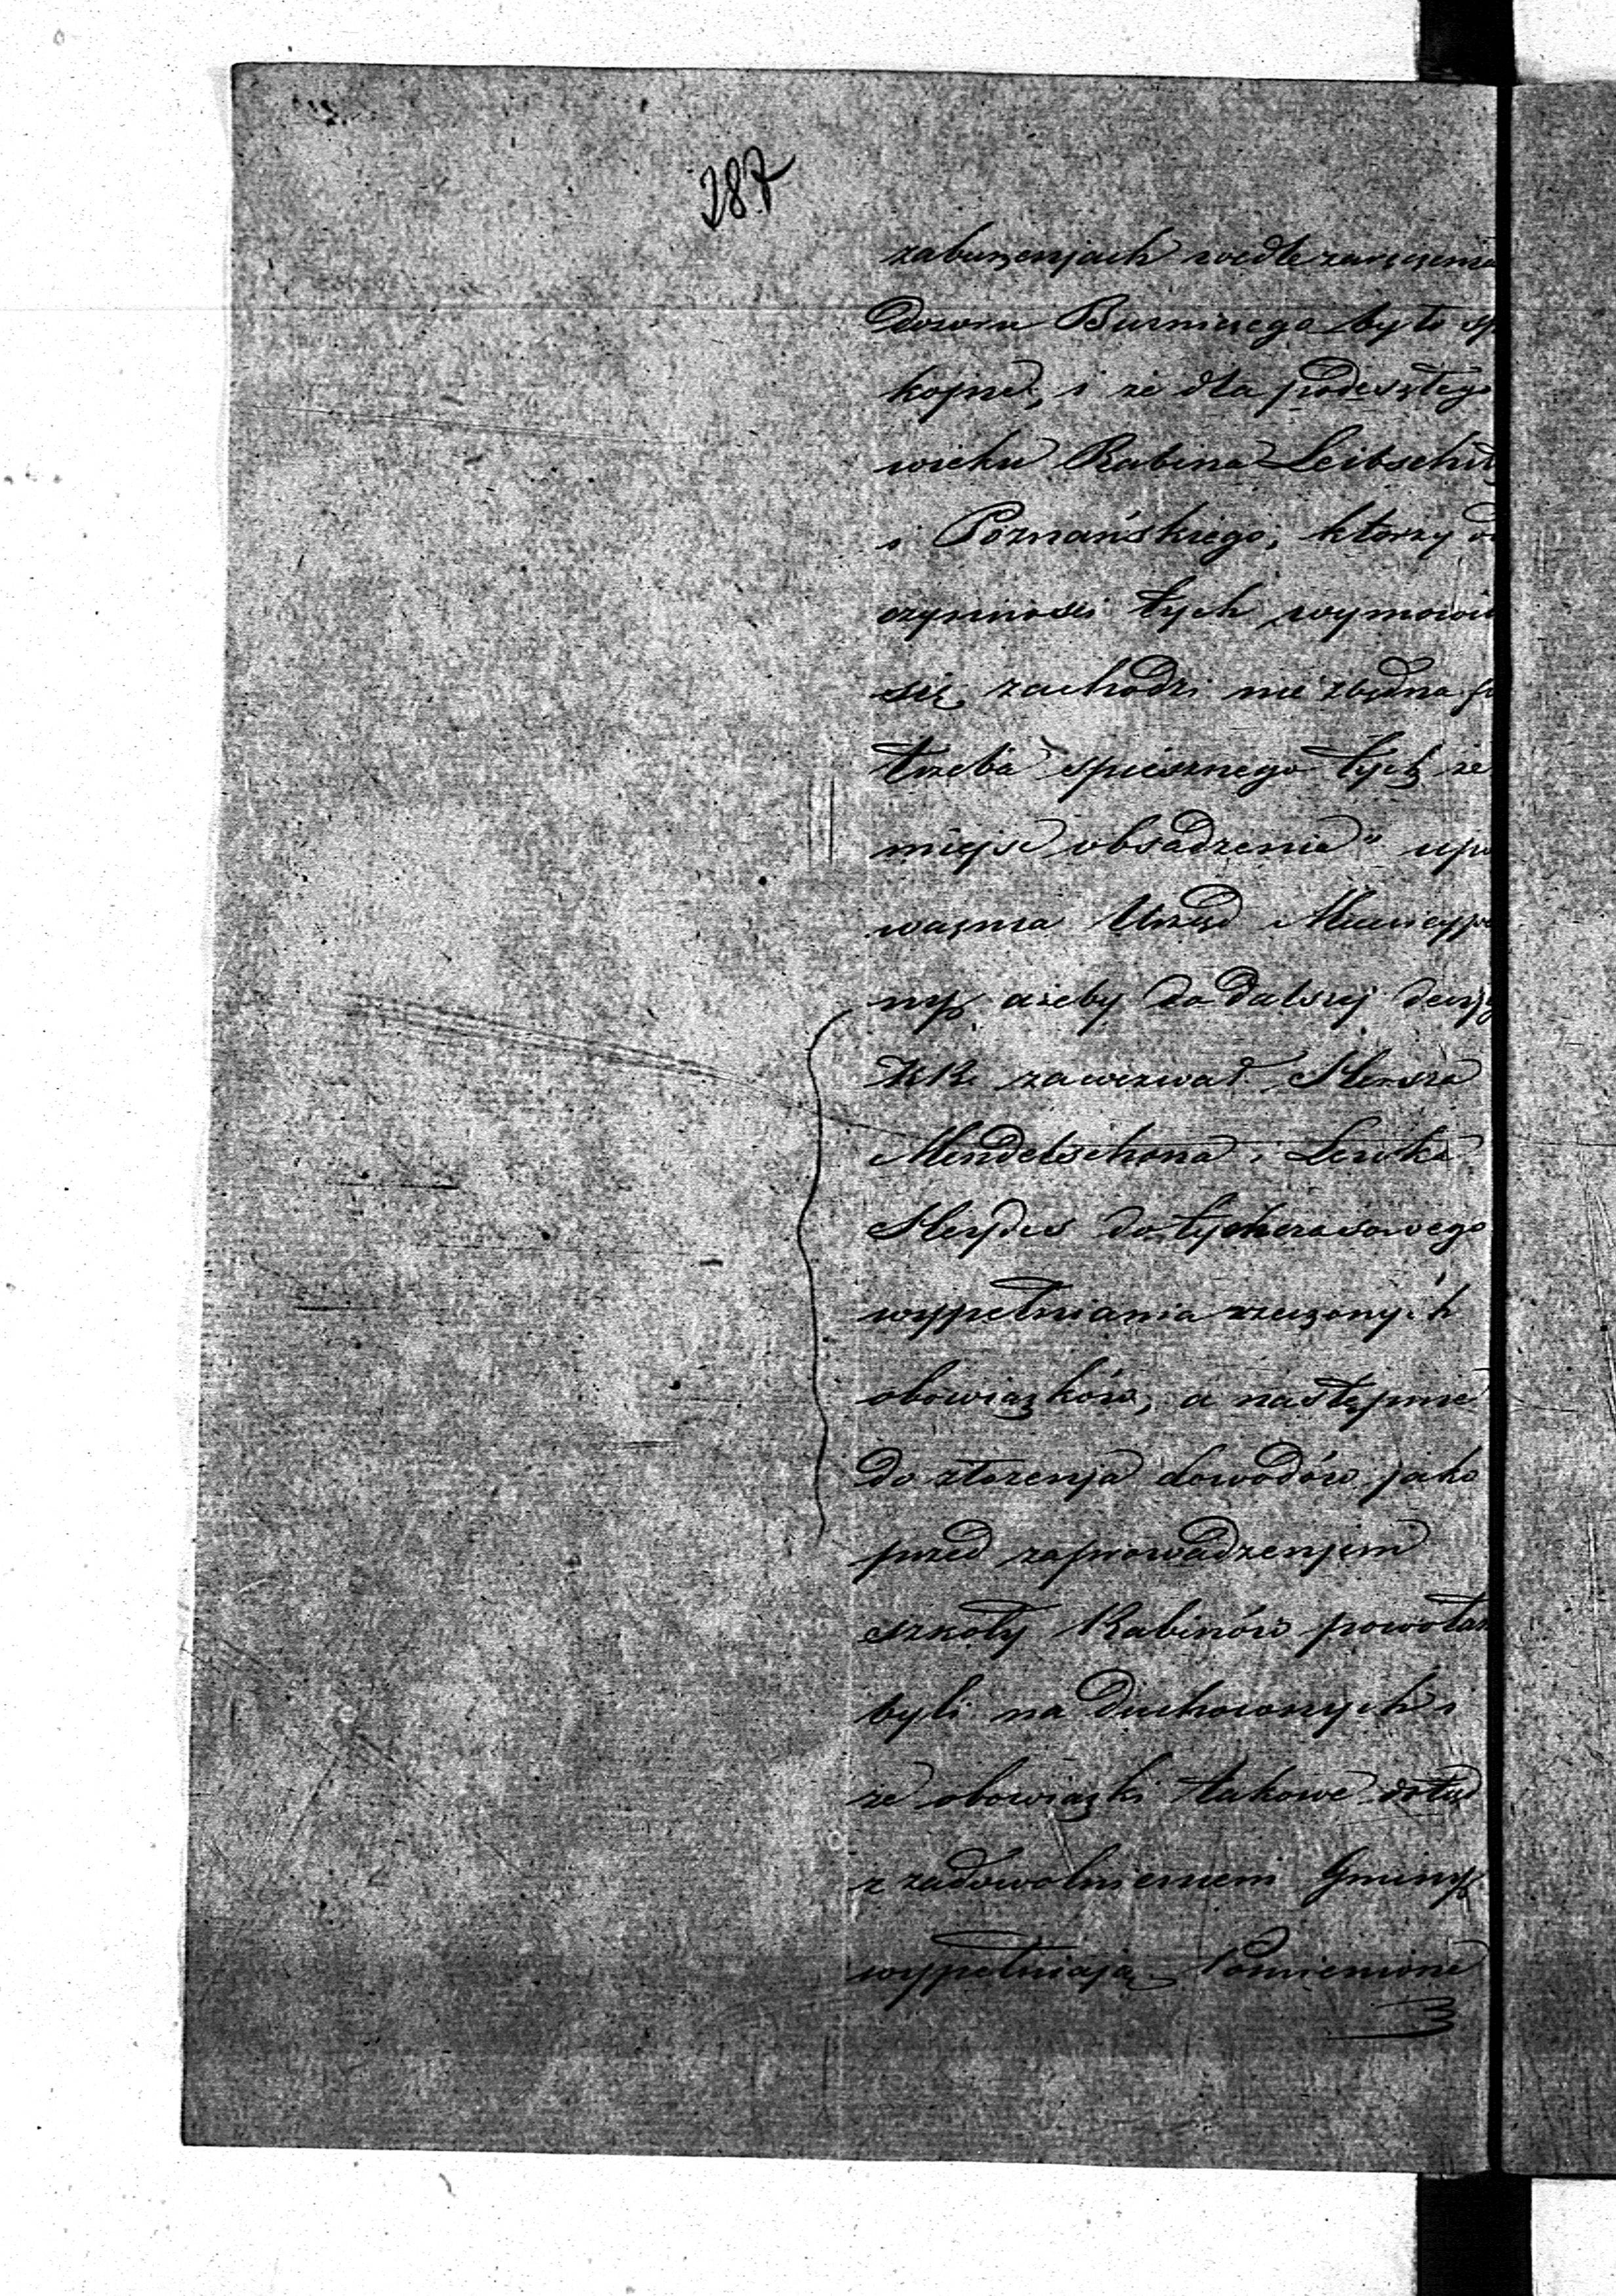 287
zaburzenjach wedle zaręczenia
Dozoru Bużniczego było sp
kojne, i że dla podeszłego
wieku Rabina Leibschü
i Poznańskiego, ktorzy o
czynności tych wymowi
się zachodzi nie zbędna po
trzeba spiesznego tych że
miejsc obsadzenia" upo
ważnia Urząd Municypa
ny, ażeby do dalszej decyz
KR. zawezwał Hersza
Mendelschona i Lewka
Heydes do tychczasowego
wypełniania rzeczonych
obowiązków, a następnie
do złożenja dowodów jako
przed zaprowadzenjem
szkoły Rabinów powołan
byli na Duchownych i
że obowiązki takowe dotąd
z zadowolnieniem Gminy
wypełniają Pomienione